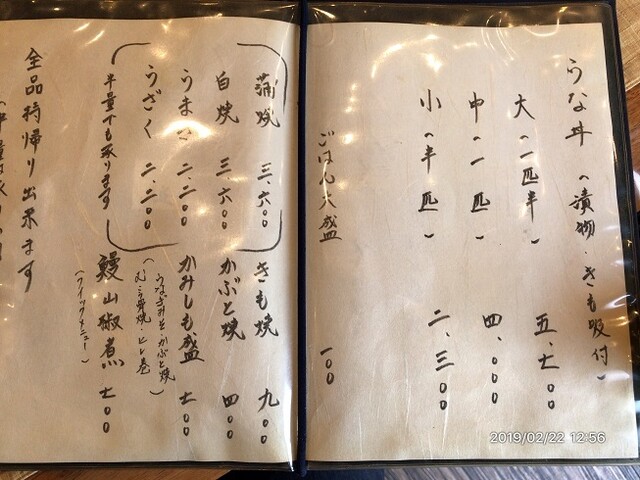 うな丼（漬物・きも吸付）
大（一匹半） 五、七〇〇
中（一匹） 四、〇〇〇
小（半匹） 二、三〇〇
ごはん大盛 一〇〇
蒲焼 三、六〇〇
白焼 三、六〇〇
うまき 二、二〇〇
うざく 二、二〇〇
半量でも承ります
きも焼 九〇〇
かぶと焼 四〇〇
かみしも盛 七〇〇
うなぎみそかぶと焼
ヒレ巻
鰻山椒煮 七〇〇
（クイックメニュー）
全品持帰り出来ます
2019/02/22 12:56